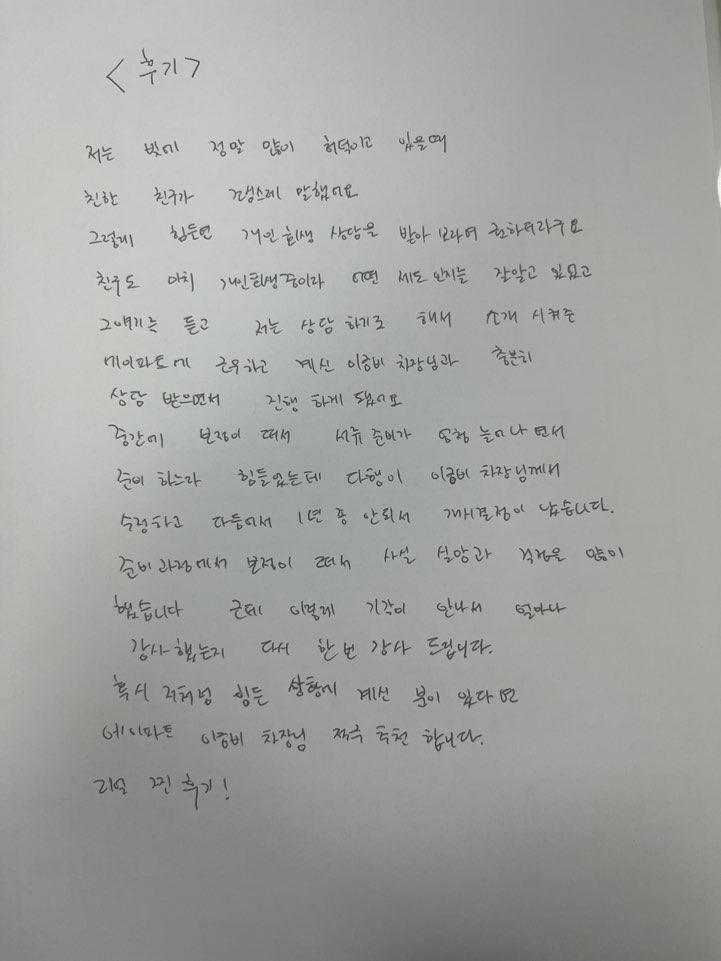 <후기>
저는 빚에 정말 많이 허덕이고 있을때
친한 친구가 걱정스레 말했어요
그렇게 힘들면 개인회생 상담을 받아 보라며 권하더라구요
친구도 마치 개인회생중이라 어떤 제도 인지는 잘알고 있었고
그얘기를 듣고 저는 상담 하기로 해서 소개 시켜준
에이파트에 근무하고 계신 이종비 차장님과 충분히
상담 받으면서 진행 하게 됐어요
중간에 보정이 떠서 서류 준비가 엄청 늘어나 면서
준비 하느라 힘들었는데 다행이 이종비 차장님께서
수정하고 다듬어서 1년 좀 안돼서 개시결정이 났습니다.
준비과정에서 보정이 떠서 사실 실망과 걱정을 많이
했습니다 근데 이렇게 기각이 안나서 얼마나
감사했는지 다시 한번 감사 드립니다.
혹시 저처럼 힘든 상황에 계신 분이 있다면
에이파트 이종비 차장님 적극 추천 합니다.
리얼 찐 후기!